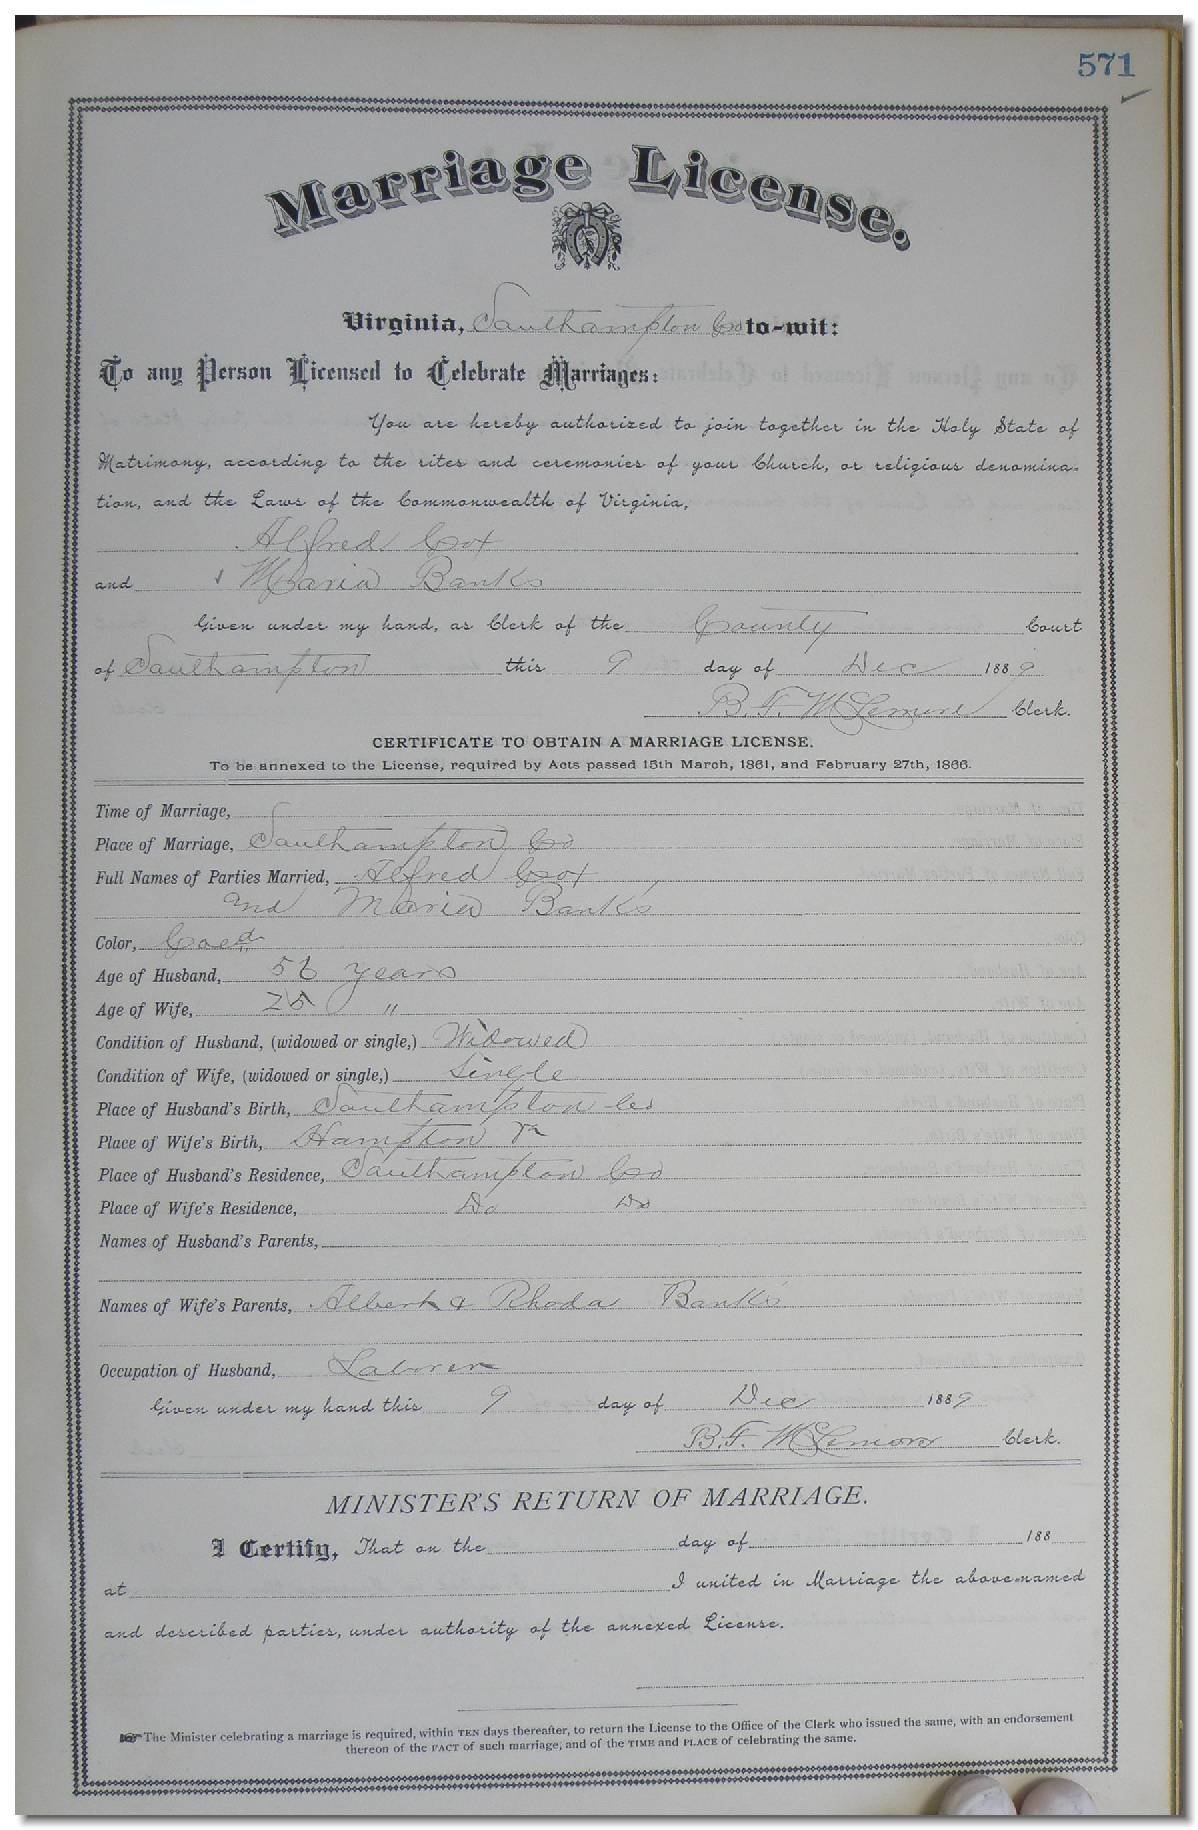 571
Marriage License.
Virginia, Southampton Co to-wit:
To any Person Licensed to Celebrate Marriages:
You are hereby authorized to join together in the Holy State of
Matrimony, according to the rites and ceremonies of your Church, or religious denomina-
tion, and the Laws of the Commonwealth of Virginia,
Alfred Cox
and Maria Banks
Given under my hand, as Clerk of the County Court
of Southampton this 9 day of Dec 1889
B. F. McLemore Clerk.
CERTIFICATE TO OBTAIN A MARRIAGE LICENSE.
To be annexed to the License, required by Acts passed 15th March, 1861, and February 27th, 1866.
Time of Marriage,
Place of Marriage, Southampton Co
Full Names of Parties Married, Alfred Cox
and Maria Banks
Color, Coed
Age of Husband, 56 years
Age of Wife, 25 "
Condition of Husband, (widowed or single,) Widowed
Condition of Wife, (widowed or single,) Single
Place of Husband's Birth, Southampton Co
Place of Wife's Birth, Hampton Va
Place of Husband's Residence, Southampton Co
Place of Wife's Residence, Do Do
Names of Husband's Parents,
Names of Wife's Parents, Albert & Rhoda Banks
Occupation of Husband, Laborer
Given under my hand this 9 day of Dec 1889
B. F. McLemore Clerk.
MINISTER'S RETURN OF MARRIAGE.
I Certify, That on the day of 188
at I united in Marriage the above-named
and described parties, under authority of the annexed License.
The Minister celebrating a marriage is required, within TEN days thereafter, to return the License to the Office of the Clerk who issued the same, with an endorsement
thereon of the FACT of such marriage, and of the TIME and PLACE of celebrating the same.